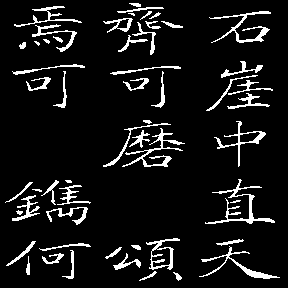 石崖中直天
齊可磨頌
焉可鐫何